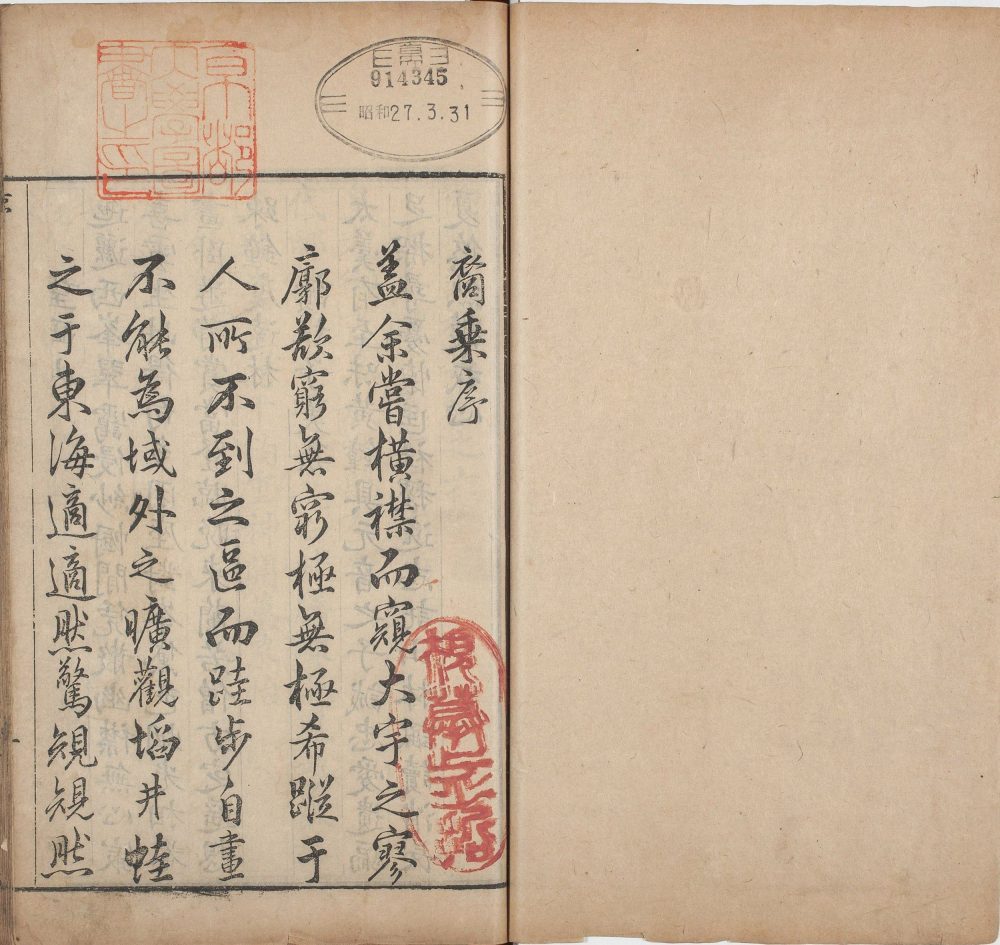 914345
昭和27.3.31
京都
大學圖
書之印
裔乘序
盖余嘗横襟而窺大宇之寥
廓欲窮無窮極無極希蹤于
人所不到之區而跬步自畫
不能為域外之曠觀埳井蛙
之于東海適適然驚規規然